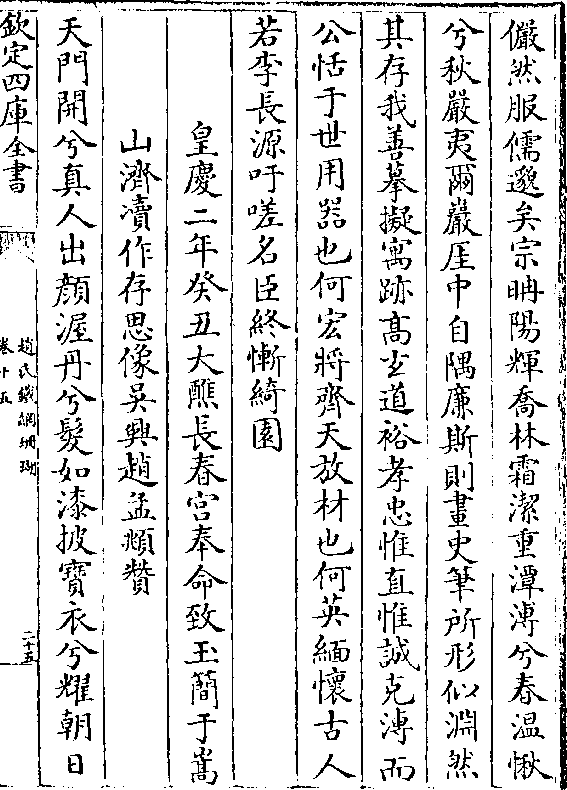 儼然服儒邈矣宗聃陽輝喬林霜潔重潭溥兮春温愀
兮秋嚴夷爾巖厓中自隅廉斯則畫史筆所形似淵然
其存我善摹擬寓跡髙玄道裕孝忠惟直惟誠克溥而
公恬于世用器也何宏將齊天放材也何英緬懷古人
若李長源吁嗟名臣終慚綺園
皇慶二年癸丑大醮長春宫奉命致玉簡于嵩
山濟瀆作存思像吳興趙孟頫贊
天門開兮真人出顔渥丹兮髮如漆披寶衣兮耀朝日
欽定四庫全書
趙氏鐵網珊瑚
卷十五
二十五